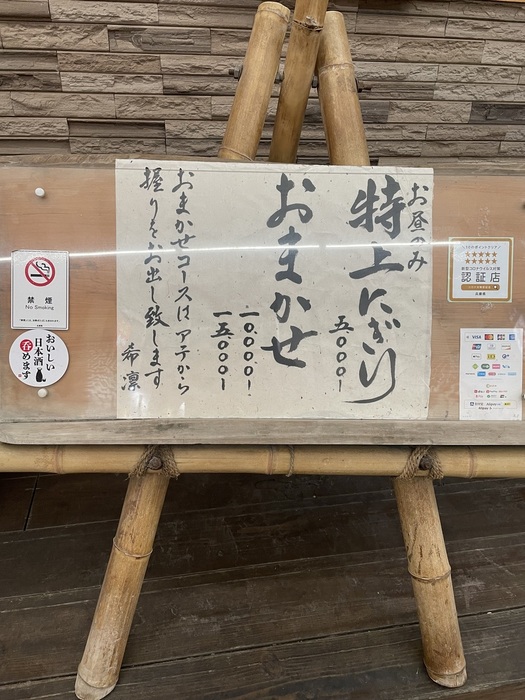 お昼のみ
特上にぎり
五、〇〇〇ー
おまかせ
一〇、〇〇〇ー
一五、〇〇〇ー
おまかせコースはアテから
握りをお出し致します
希凛
禁煙
No Smoking
おいしい
日本酒
呑めます
認証店
兵庫県
VISA